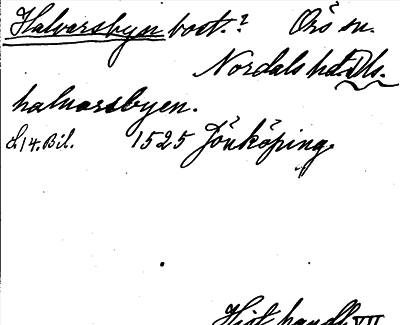 Halvarsbyn bort.? Örs sn.
Nordals hd. Dls.
halvarsbyen.
L. 14. Bil. 1525 Jönköping
Hist. handl. VII